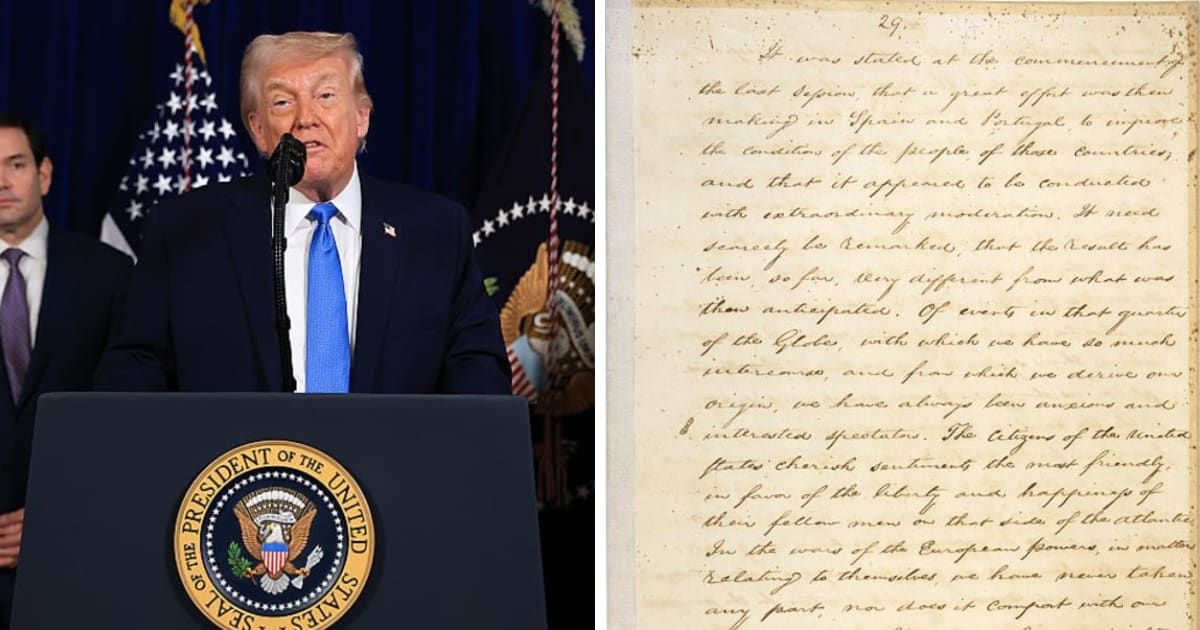 SEAL OF THE PRESIDENT OF THE UNITED STATES
29.
It was stated at the commencement of
the last session that a great effort was then
making in Spain and Portugal, to improve
the condition of the people of those countries;
and that it appeared to be conducted
with extraordinary moderation. It need
scarcely be remarked, that the result has
been, so far, very different from what was
then anticipated. Of events in that quarter
of the Globe, with which we have so much
intercourse, and from which we derive our
origin, we have always been anxious and
interested spectators. The Citizens of the United
States cherish sentiments the most friendly,
in favor of the liberty and happiness of
their fellow men on that side of the atlantic
In the wars of the European powers, in matters
relating to themselves, we have never taken
any part, nor does it comport with our